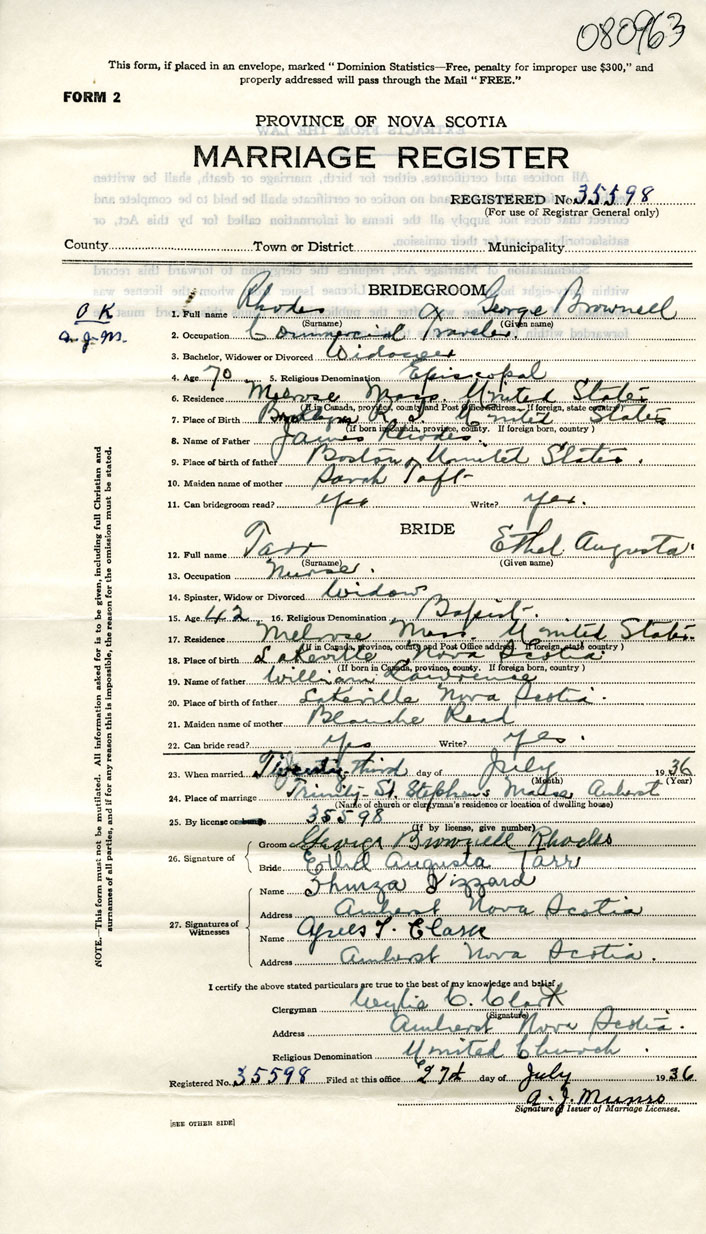 080963
This form, if placed in an envelope, marked "Dominion Statistics—Free, penalty for improper use $300," and
properly addressed will pass through the Mail "FREE."
FORM 2
PROVINCE OF NOVA SCOTIA
MARRIAGE REGISTER
REGISTERED No. 35598
(For use of Registrar General only)
County Town or District Municipality
BRIDEGROOM
O K
A. J. M.
1. Full name Rhodes George Brownell
(Surname) (Given name)
2. Occupation Commercial Traveler.
3. Bachelor, Widower or Divorced Widower
4. Age 70 5. Religious Denomination Episcopal
6. Residence Melrose Mass. United States
(If in Canada, province, county and Post Office address. If foreign, state country)
7. Place of Birth R. I. United States
(If born in Canada, province, county. If foreign born, country)
8. Name of Father James Rhodes.
9. Place of birth of father Boston, United States.
10. Maiden name of mother Sarah Taft
11. Can bridegroom read? yes Write? yes.
BRIDE
12. Full name Tarr Ethel Augusta.
(Surname) (Given name)
13. Occupation Nurse.
14. Spinster, Widow or Divorced Widow
15. Age 42 16. Religious Denomination Baptist.
17. Residence Melrose Mass. United States.
(If in Canada, province, county and Post Office address. If foreign, state country)
18. Place of birth Lakeville Nova Scotia.
(If born in Canada, province, county. If foreign born, country)
19. Name of father William Lawrence
20. Place of birth of father Lakeville Nova Scotia.
21. Maiden name of mother Blanche Read
22. Can bride read? yes Write? yes.
23. When married Twenty third day of July 1936
(Month) (Year)
24. Place of marriage Trinity-St. Stephen's Manse Amherst
(Name of church or clergyman's residence or location of dwelling house)
25. By license or 35598
(If by license, give number)
26. Signature of Groom George Brownell Rhodes
Bride Ethel Augusta Tarr
27. Signatures of Witnesses Name Thurza Vizzard
Address Amherst Nova Scotia
Name Agnes T. Clark
Address Amherst Nova Scotia.
I certify the above stated particulars are true to the best of my knowledge and belief.
Clergyman C. Clark
(Signature)
Address Amherst Nova Scotia.
Religious Denomination United Church.
Registered No. 35598 Filed at this office 27th day of July 1936
A. J. Munro
Signature of Issuer of Marriage Licenses.
[SEE OTHER SIDE]
NOTE.—This form must not be mutilated. All information asked for is to be given, including full Christian and
surnames of all parties, and if for any reason this is impossible, the reason for the omission must be stated.